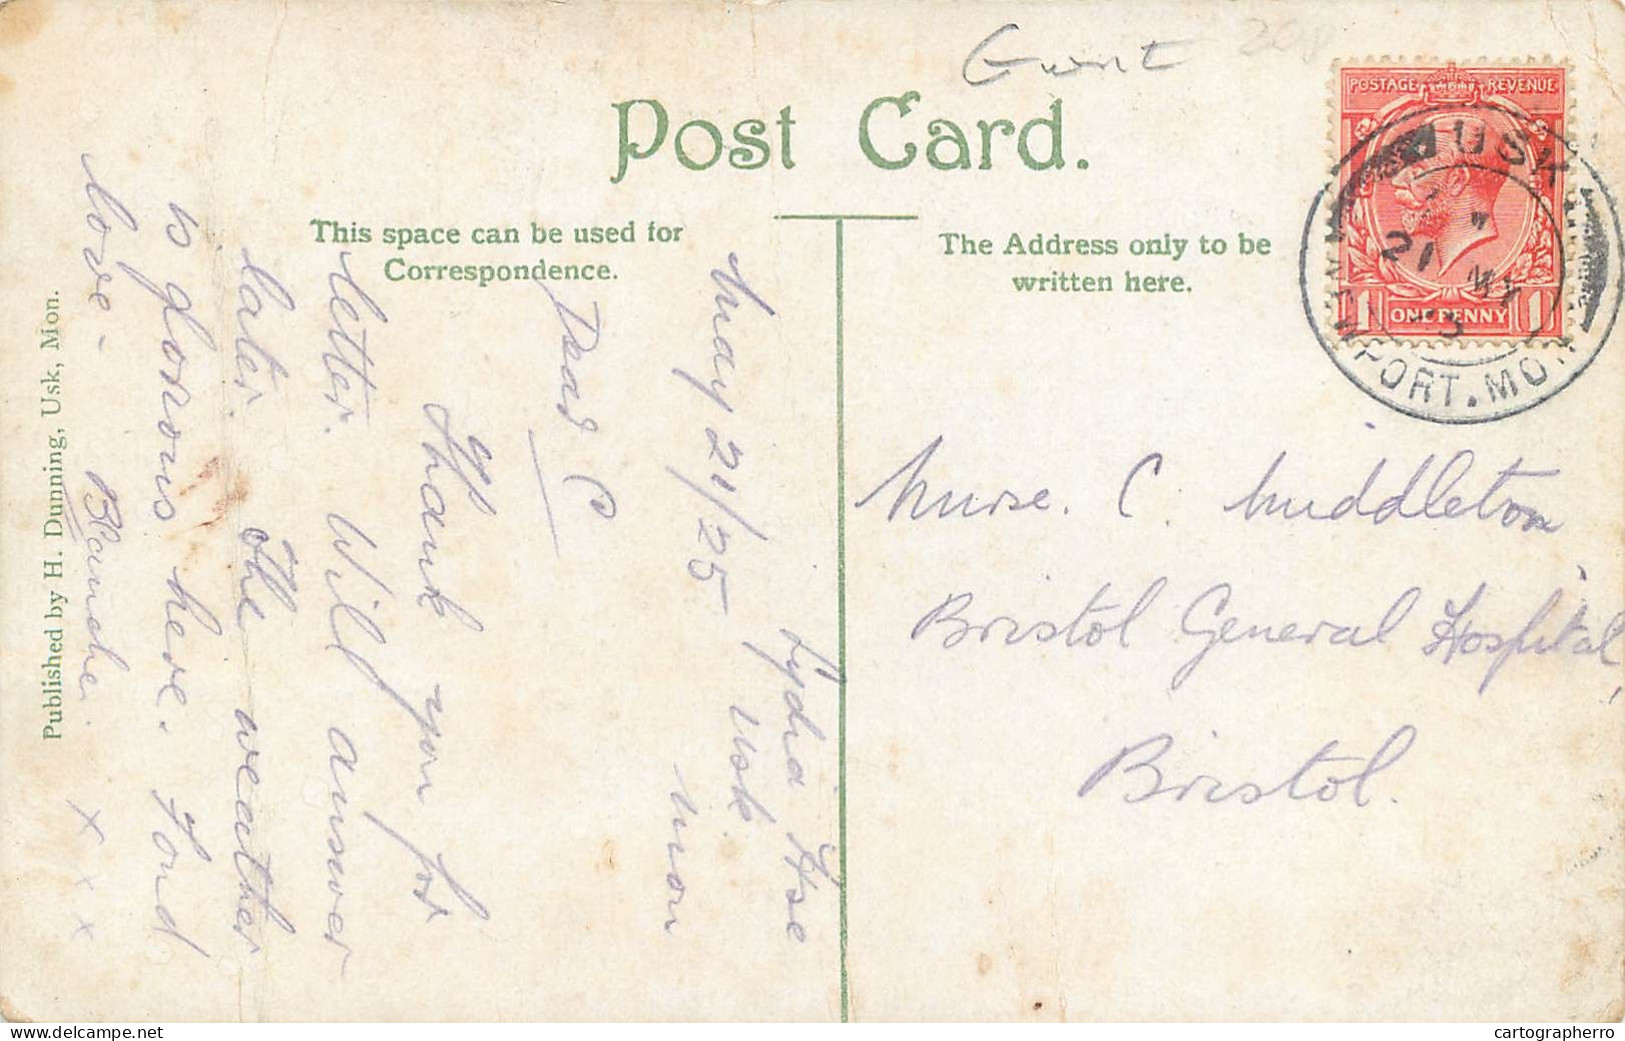 Gwent 20p
Post Card.
This space can be used for
Correspondence.
The Address only to be
written here.
POSTAGE REVENUE
1 ONE PENNY 1
USK
21 MY
NEWPORT. MON
Lydia Hse
Usk.
Mon
May 21/25
Dear C
Thank you for
letter. Will answer
later. The weather
is glorious here. Fond
love - Blanche. x x x
Nurse. C. Middleton
Bristol General Hospital,
Bristol.
Published by H. Dunning, Usk, Mon.
cartographerro